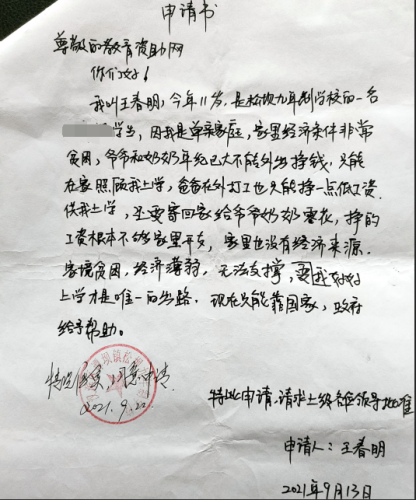 申请书
尊敬的教育资助网
你们好！
我叫王春明，今年11岁，是松坝九年制学校的一名
学生，因我是单亲家庭，家里经济条件非常
贫困，爷爷和奶奶年纪已大不能外出挣钱，只能
在家照顾我上学，爸爸在外打工也只能挣一点低工资
供我上学，还要寄回家给爷爷奶奶零花，挣的
工资根本不够家里开支，家里也没有经济来源。
家境贫困，经济薄弱，无法支撑，要我好好
上学才是唯一的出路。现在只能靠国家，政府
给予帮助。
情况属实，同意申请
2021.9.22
特此申请，请求上级各部领导批准
申请人：王春明
2021年9月13日